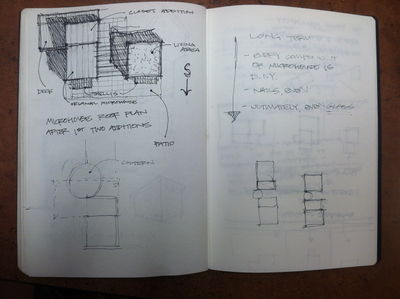 CLOSET ADDITION
LIVING
AREA
S
DECK
TRELLIS
ORIGINAL MICROHOUSE
MICROHOUSE ROOF PLAN
AFTER 1ST TWO ADDITIONS
PATIO
CISTERN
LONG TERM
- EVERY COMPONENT
OF MICROHOUSE IS
D.I.Y.
- NAILS, EVEN
- ULTIMATELY, EVEN GLASS